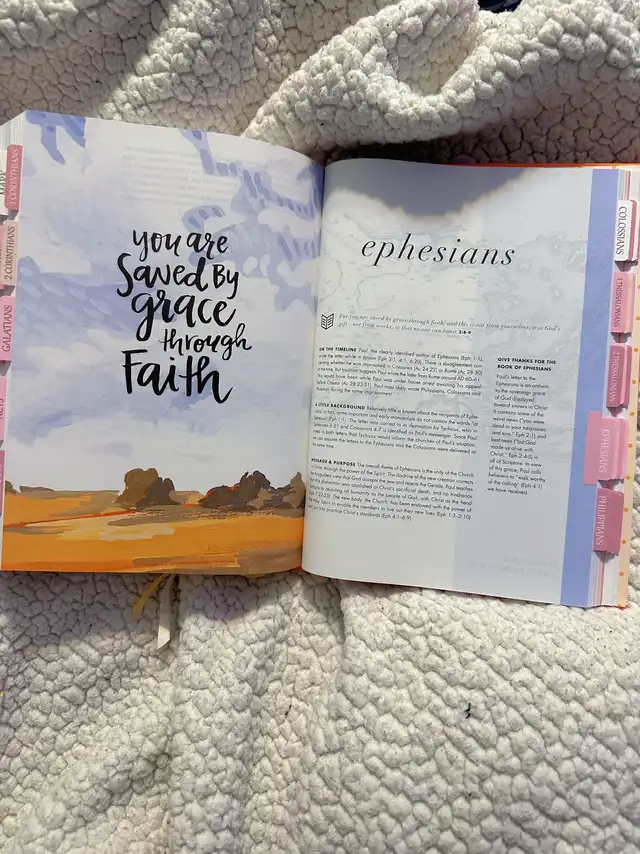 1 CORINTHIANS
2 CORINTHIANS
GALATIANS
you are
Saved By
grace
through
Faith
ephesians
For you are saved by grace through faith, and this is not from yourselves; it is God's
gift – not from works, so that no one can boast. 2:8-9
ON THE TIMELINE Paul, the clearly identified author of Ephesians (Eph 1:1),
wrote the letter while in prison (Eph 3:1; 4:1; 6:20). There is disagreement con-
cerning whether he was imprisoned in Caesarea (Ac 24:22) or Rome (Ac 28:30)
at the time, but tradition suggests Paul wrote the letter from Rome around AD 60-61.
This would have been while Paul was under house arrest awaiting his appeal
before Caesar (Ac 28:23-31). Paul most likely wrote Philippians, Colossians and
Philemon during the same imprisonment.
A LITTLE BACKGROUND Relatively little is known about the recipients of Ephe-
sians; in fact, some important and early manuscripts do not contain the words "at
Ephesus" (Eph 1:1). The letter was carried to its destination by Tychicus, who in
Ephesians 6:21 and Colossians 4:7 is identified as Paul's messenger. Since Paul
notes in both letters that Tychicus would inform the churches of Paul's situation,
we can assume the letters to the Ephesians and the Colossians were delivered at
the same time.
MESSAGE & PURPOSE The overall theme of Ephesians is the unity of the Church
in Christ, through the power of the Spirit. The doctrine of the new creation corrects
the misguided view that God accepts the Jew and rejects the Gentile. Paul teaches
that this distinction was abolished at Christ's sacrificial death, and no hindrance
remains to reuniting all humanity as the people of God, with Christ as the head
(Eph 1:22-23). The new body, the Church, has been endowed with the power of
the Holy Spirit to enable the members to live out their new lives (Eph 1:3–2:10)
and put into practice Christ's standards (Eph 4:1–6:9).
GIVE THANKS FOR THE
BOOK OF EPHESIANS
Paul's letter to the
Ephesians is an anthem
to the sovereign grace
of God displayed
toward sinners in Christ.
It contains some of the
worst news ("you were
dead in your trespasses
and sins," Eph 2:1) and
best news ("but God
made us alive with
Christ," Eph 2:4-5) in
all of Scripture. In view
of this grace, Paul calls
believers to "walk worthy
of the calling" (Eph 4:1)
we have received.
COLOSSIANS
1 THESSALONIANS
2 THESSALONIANS
EPHESIANS
PHILIPPIANS